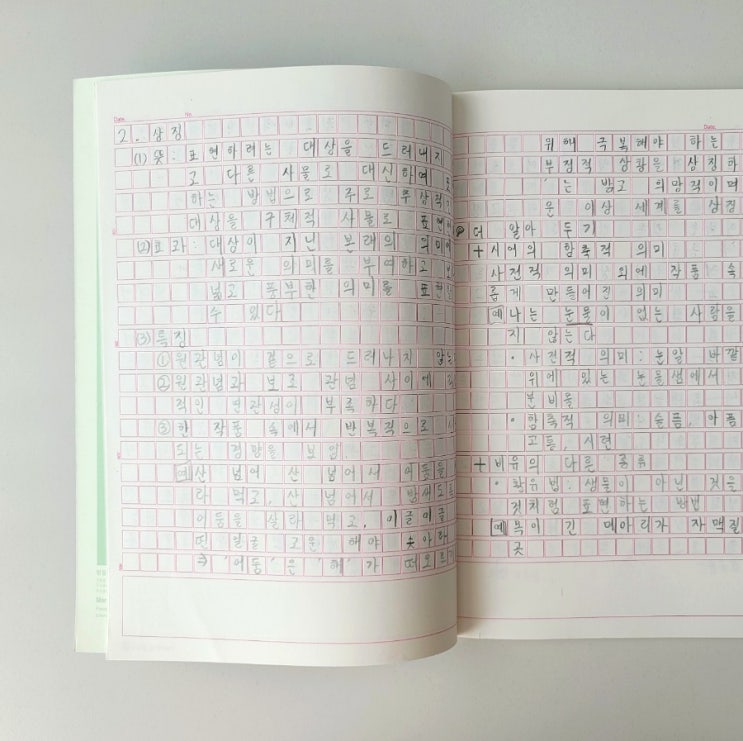 Date. No.
2. 상징
(1) 뜻: 표현하려는 대상을 드러내지
고 다른 사물로 대신하며
하는 방법으로 주로 추상적
대상을 구체적 사물로 표현
(2) 효과: 대상이 지닌 본래의 의미에
새로운 의미를 부여하고
넓고 풍부한 의미를 표현
수 있다
(3) 특징
① 원관념이 겉으로 드러나지 않는
② 원관념과 보조 관념 사이에
적인 연관성이 부족하다
③ 한 작품 속에서 반복적으로
되는 경향을 보임.
예 산 넘어 산 넘어서 어둠을
라 먹고, 산 넘어서 밤새도록
어둠을 살라 먹고, 이글이글
띤 얼굴 고운 해야 솟아라
→ '어둠'은 '해'가 떠오르기
Date.
위해 극복해야 하는
부정적 상황을 상징하
'는 밝고 희망적이며
운 이상 세계를 상징
더 알아 두기
+ 시어의 함축적 의미
사전적 의미 외에 작품 속
롭게 만들어진 의미
예 나는 눈물이 없는 사람을
지 않는다
• 사전적 의미: 눈알 바깥
위에 있는 눈물샘에서
분비물
• 함축적 의미: 슬픔, 아픔
고통, 시련
+ 비유의 다른 종류
• 활유법: 생물이 아닌 것을
것처럼 표현하는 방법
예 목이 긴 메아리가 자맥질
곳